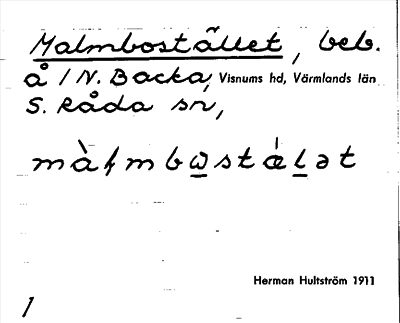 Malmbostället, beb.
å 1 N. Backa, Visnums hd, Värmlands län
S. Råda sn,
Herman Hultström 1911
1